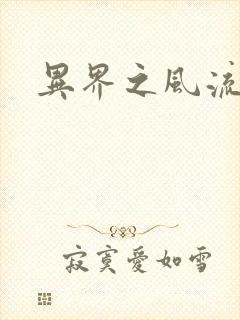 異界之風流
寂寞愛如雪